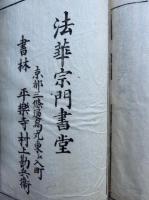 法華宗門書堂
京都三條通烏丸東ヘ入町
書林 平樂寺村上勘兵衛